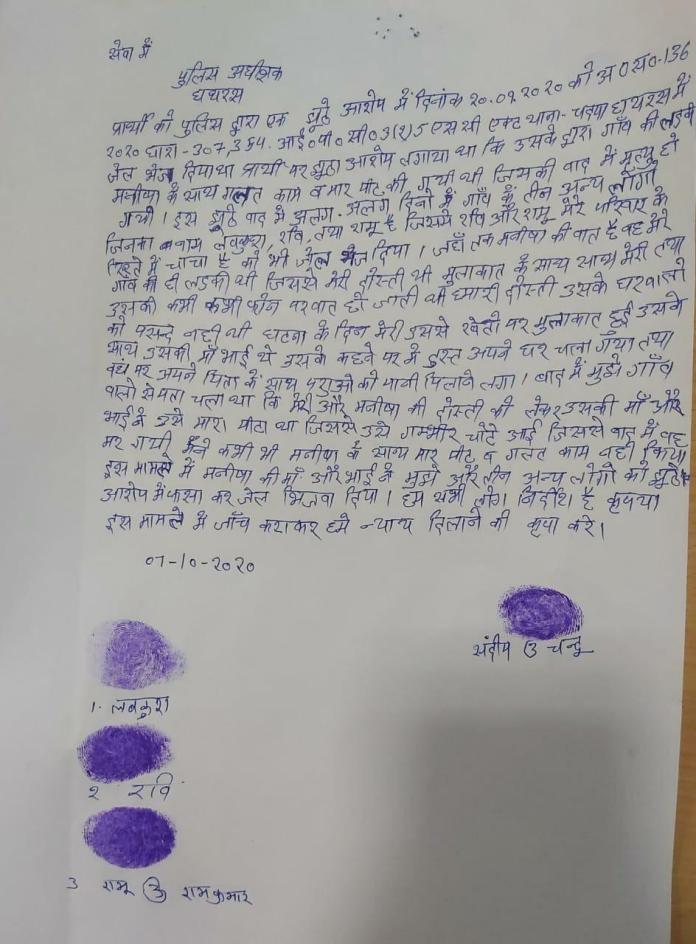 सेवा में
पुलिस अधीक्षक
हाथरस
प्रार्थी को पुलिस द्वारा एक झूठे आरोप में दिनांक २०.०९.२०२० को अ0 स0-136
२०२० धारा-307, 354. आई०पी० सी० ३(२)5 एस सी एक्ट थाना - चन्दपा हाथरस में
जेल भेज दिया था प्रार्थी पर झूठा आरोप लगाया था कि उसके द्वारा गाँव की लडकी
मनीषा के साथ गलत काम व मार पीट की गयी थी जिसकी बाद में मृत्यु हो
गयी। इस झूठे वाद में अलग-अलग दिनों में गाँव के तीन अन्य लोगो
जिनका नाम लवकुश, रवि, तथा रामू है जिसमे रवि और रामू मेरे परिवार के
रिस्ते में चाचा है को भी जेल भेज दिया। जहाँ तक मनीषा की बात है वह मेरे
गाँव की ही लडकी थी जिससे मेरी दोस्ती थी मुलाकात के साथ साथ मेरी तथा
उसकी कभी कभी फोन पर बात हो जाती थी हमारी दोस्ती उसके घरवालो
को पसन्द नही थी घटना के दिन मेरी उससे खेतो पर मुलाकात हुई उसके
साथ उसकी माँ भाई थे उसके कहने पर मै तुरन्त अपने घर चला गया तथा
वहां पर अपने पिता के साथ पशुओ को पानी पिलाने लगा। बाद में मुझे गाँव
वालो से पता चला था कि मेरी और मनीषा की दोस्ती को लेकर उसकी माँ और
भाई ने उसे मारा पीटा था जिससे उसे गम्भीर चोटे आई जिससे बाद में वह
मर गयी मैने कभी भी मनीषा के साथ मार पीट व गलत काम नही किया
इस मामले में मनीषा की माँ और भाई ने मुझे और तीन अन्य लोगो को झूठे
आरोप में फसा कर जेल भिजवा दिया। हम सभी लोग निर्दोश है कृपया
इस मामले में जाँच कराकर हमे न्याय दिलाने की कृपा करे।
07-10-२०२०
संदीप उ चन्दू
1. लवकुश
२ रवि
3 रामू उ रामकुमार